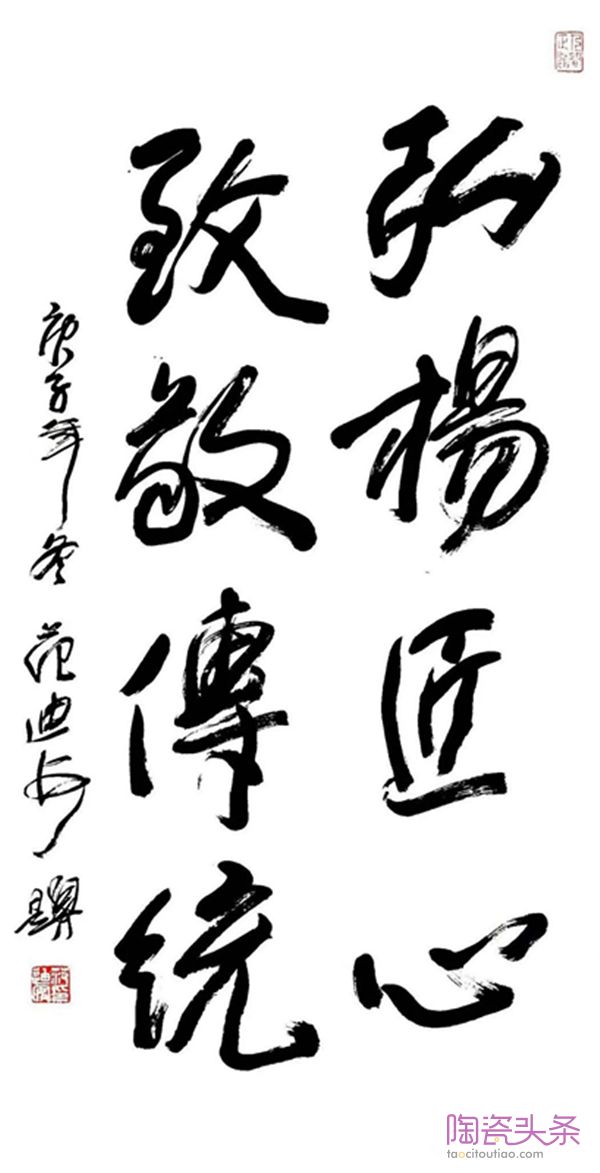 弘楊匠心
致敬傳統
庚子年冬 范迪安題
陶瓷头条
taocitoutiao.com